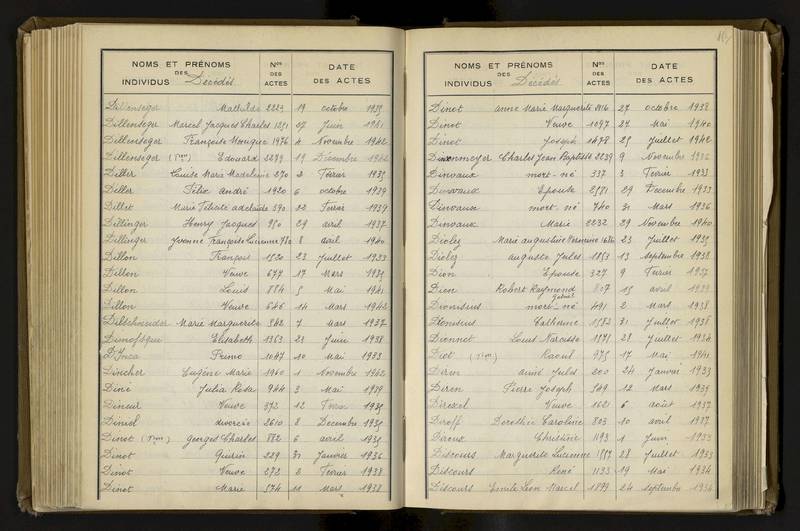 NOMS ET PRÉNOMS
DES
INDIVIDUS Décédés
Nos
DES
ACTES
DATE
DES ACTES
Dillenseger Mathilde 2223 19 octobre 1939
Dillenseger Marcel Jacques Charles 1251 27 Juin 1941
Dillenseger Françoise Monique 1976 4 Novembre 1942
Dillenseger Edouard 2279 19 Décembre 1942
Diller Louise Marie Madeleine 270 2 Février 1935
Diller Félix André 1920 6 octobre 1939
Dillet Marie Félicité adelaïde 390 22 Février 1939
Dillinger Henry Jacques 950 29 avril 1937
Dillinger Yvonne Françoise Lucienne 780 8 avril 1940
Dillon François 1520 23 Juillet 1933
Dillon Veuve 677 17 Mars 1939
Dillon Louis 884 5 Mai 1941
Dillon Veuve 646 14 Mars 1942
Diltschneider Marie Marguerite 562 7 Mars 1937
Elisabeth 1363 21 Juin 1938
Primo 1047 10 Mai 1933
Dincher Eugène Marie 1960 1 Novembre 1942
Diné Julia Rosa 944 3 Mai 1939
Dineur Veuve 372 12 1935
Diniel divorcée 2610 8 Décembre 1935
Dinot georges Charles 882 6 avril 1935
Dinot 229 31 Janvier 1936
Dinot Veuve 272 2 Février 1938
Dinot Marie 574 11 Mars 1938
NOMS ET PRÉNOMS
DES
INDIVIDUS Décédés
Nos
DES
ACTES
DATE
DES ACTES
Dinot anne Marie Marguerite 27 octobre 1938
Dinot Veuve 1097 27 Mai 1940
Dinot Joseph 1478 29 Juillet 1942
Charles Jean Baptiste 2239 9 Novembre 1936
Dinvaux mort-né 337 3 Février 1933
Dinvaux Epouse 2581 29 Décembre 1933
Dinvaux mort-né 740 31 Mars 1936
Dinvaux Marie 2232 29 Novembre 1940
Diolez Marie augustine 23 Juillet 1935
Diolez auguste Jules 1853 13 septembre 1938
Dion Epouse 327 9 Février 1937
Dion Robert Raymond 15 avril 1939
Dionisius mort-né 491 2 Mars 1938
Dionisius Catherine 1582 31 Juillet 1938
Dionnet Louis Narcisse 1571 28 Juillet 1934
Diot Raoul 975 17 Mai 1941
Diren aimé Jules 200 24 Janvier 1933
Diren Pierre Joseph 549 12 Mars 1935
Direxel Veuve 1621 6 août 1937
Diroff Dorothée Caroline 803 10 avril 1937
Diroux Christine 1193 1 Juin 1933
Discours Marguerite Lucienne 1557 28 Juillet 1933
Discours René 1133 19 Mai 1934
Discours Emile Léon Marcel 1899 24 septembre 1934